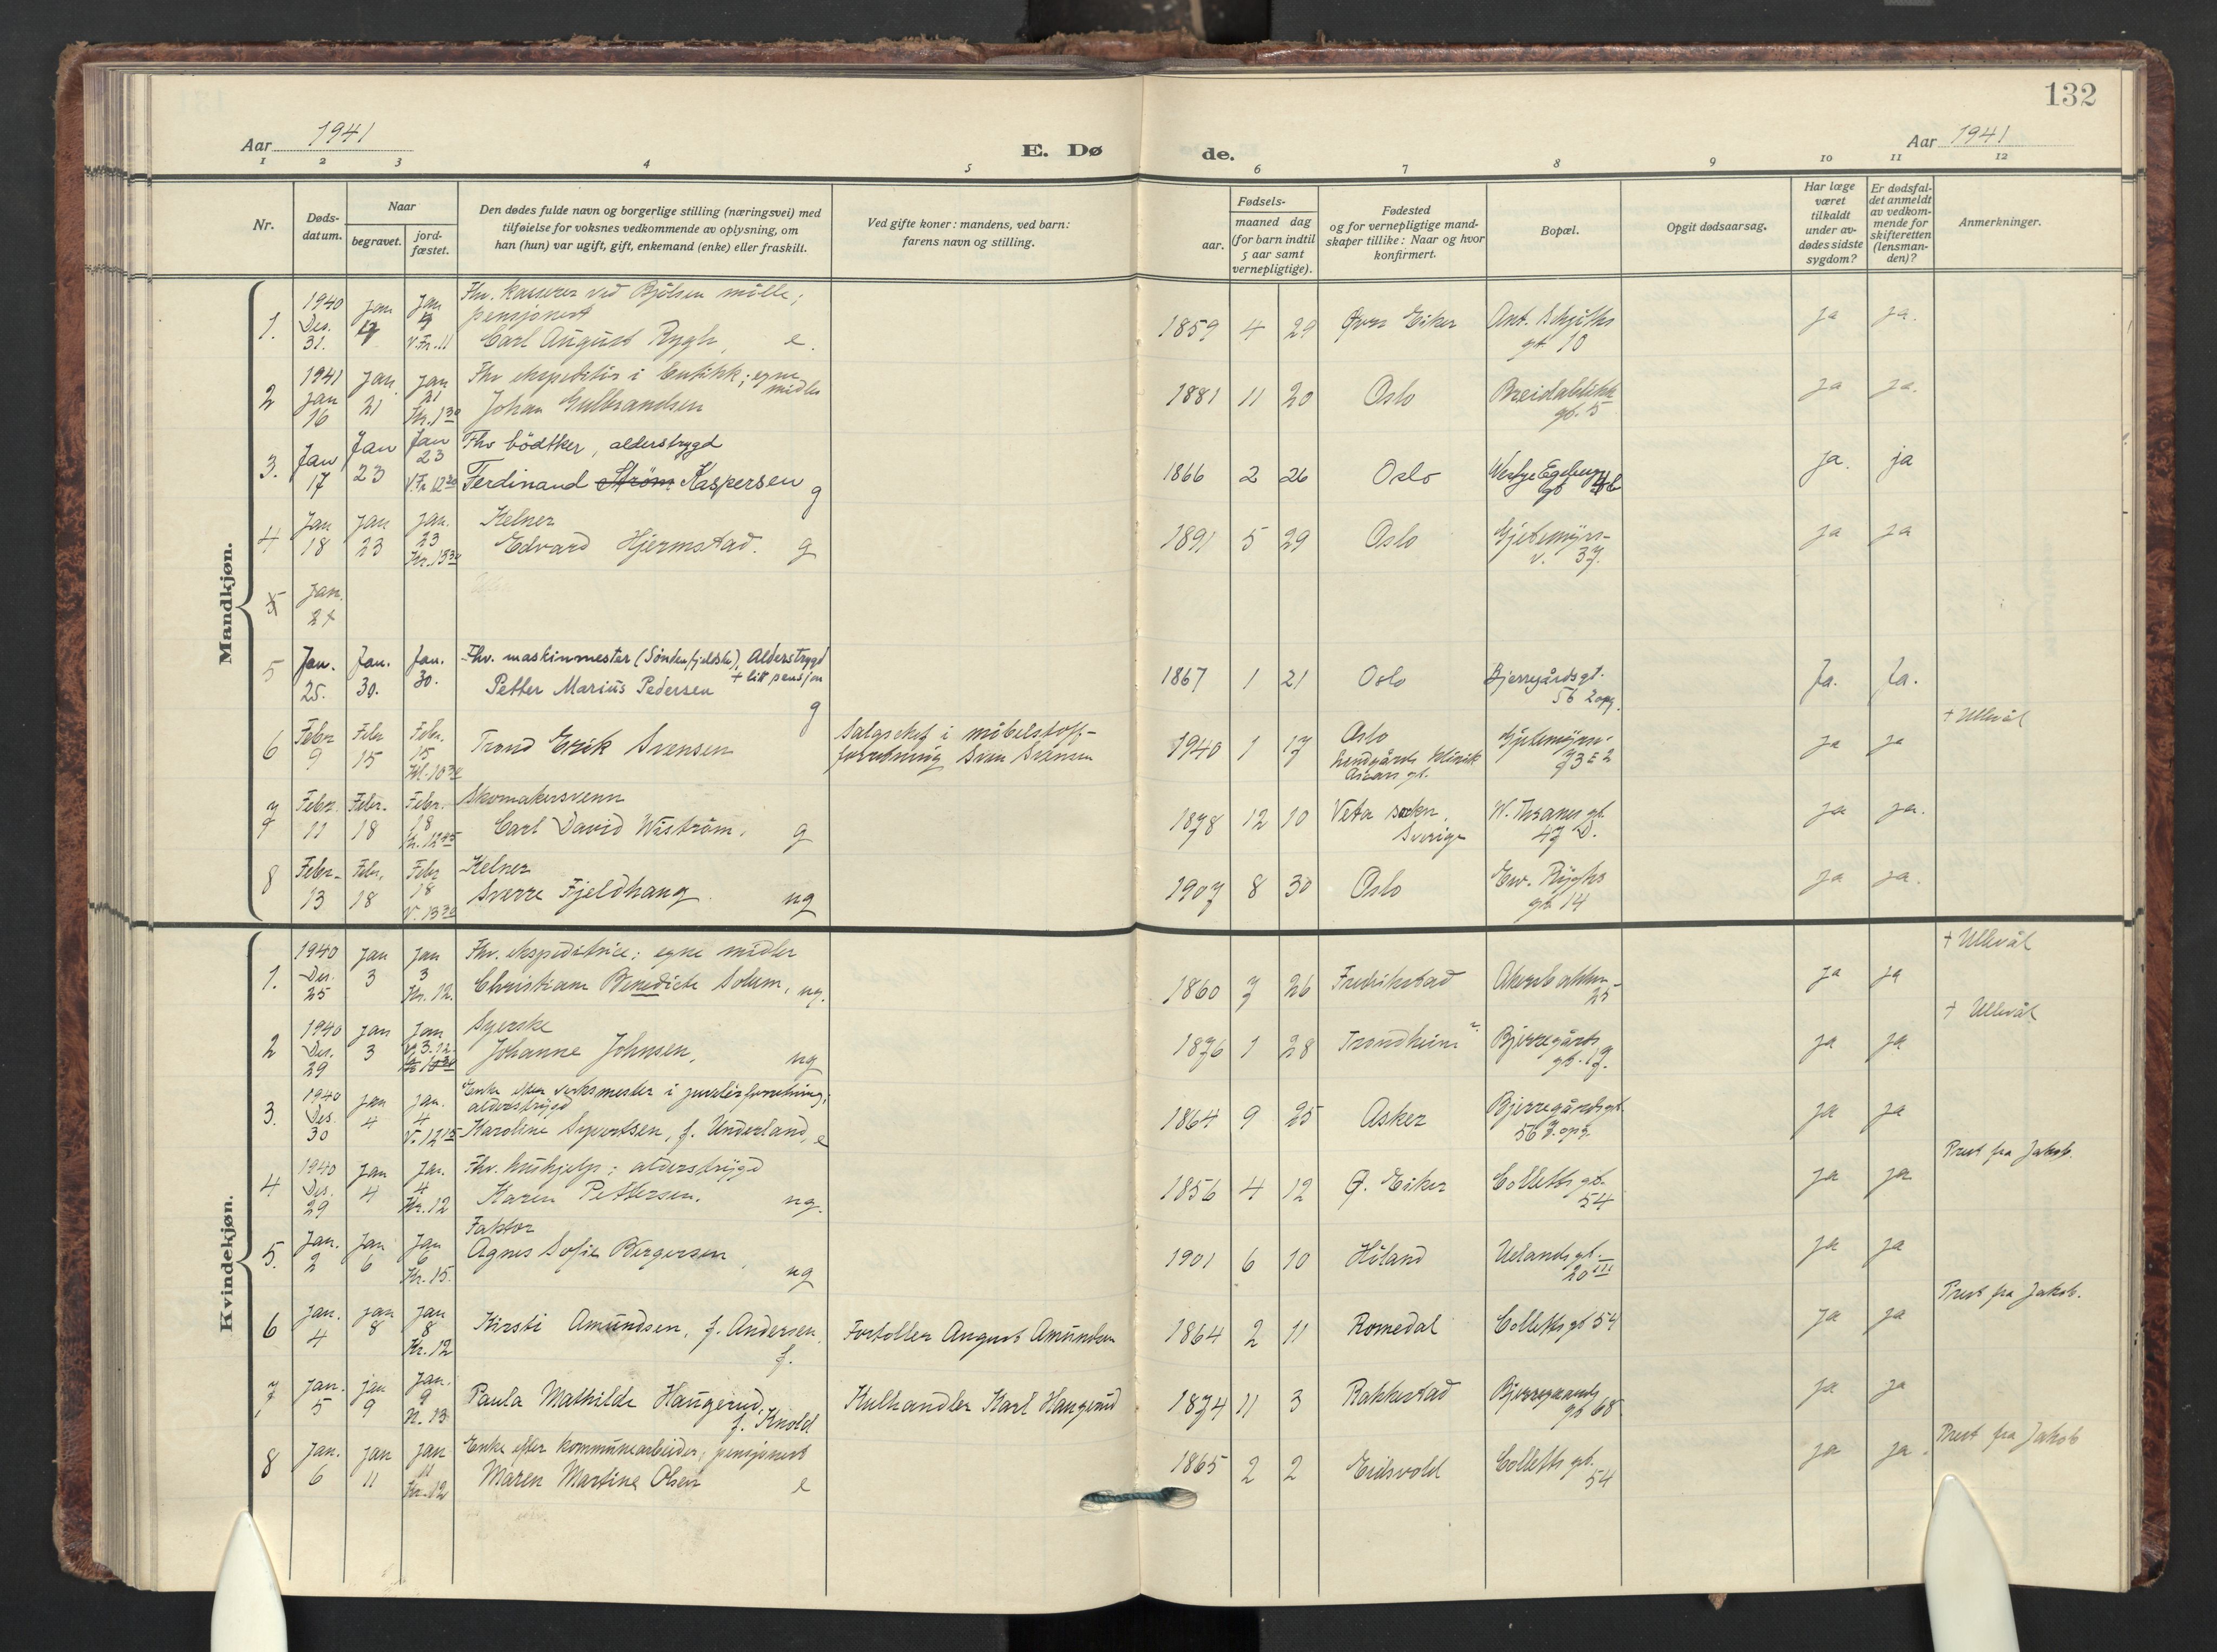 132
Aar 1941
E. Dø
de.
Aar 1941
1 2 3 4 5 6 7 8 9 10 11 12
Nr.
Døds-
datum.
Naar
begravet.
jord-
fæstet.
Den dødes fulde navn og borgerlige stilling (næringsvei) med
tilføielse for voksnes vedkommende av oplysning, om
han (hun) var ugift, gift, enkemand (enke) eller fraskilt.
Ved gifte koner: mandens, ved barn:
farens navn og stilling.
Fødsels-
aar.
maaned dag
(for barn indtil
5 aar samt
vernepligtige).
Fødested
og for vernepligtige mand-
skaper tillike: Naar og hvor
konfirmert.
Bopæl.
Opgit dødsaarsag.
Har læge
været
tilkaldt
under av-
dødes sidste
sygdom?
Er dødsfal-
det anmeldt
av vedkom-
mende for
skifteretten
(lensman-
den)?
Anmerkninger.
Mandkjøn.
1940 Jan Jan Fhv. kasserer ved Bjølsen mølle;
1. Des. pensjonert 1859 4 29 Øvre Eiker Ant. Schjøths ja ja.
31. V.Fr. 11 Carl August Rygh, e. gt. 10
1941 Jan. Jan Fhv ekspeditør i butikk; egne midler
2 Jan 21 21 Johan Gulbrandsen 1881 11 20 Oslo Breidablikk ja ja.
16 Kr. 13 30 gt. 5
Jan Jan Fhv bödtker, alderstrygd
3. Jan 23 23 Ferdinand Strøm Kaspersen g 1866 2 26 Oslo Westye Egebergs ja. ja
17 V.Fr 12 30 gt
Jan Jan Jan. Kelner
4 18 23 23 Edvard Hjermstad. g 1891 5 29 Oslo Gjetemyrs- ja ja
Kr. 13 30 v. 37.
5 Jan.
24
5 Jan. Jan. Jan. Fhv. maskinmester (Søndenfjeldske), Alderstrygd
25. 30. 30. + litt pensjon
Petter Marius Pedersen g 1867 1 21 Oslo Bjerregårdsgt. Ja. Ja.
56 2 opg.
6 Febr Febr Febr. Trond Erik Svensen Salgssjef i møbelstoff- 1940 1 17 Oslo Gjetemyrs- ja ja + Ullevål
9 15 15 forretning Sven Svensen Lundgårds klinik
Kl. 10 30 gt.
7 Febr. Febr. Febr. Skomakersvenn
11 18 18 Carl David Wiström. g 1878 12 10 Veta sokn, W. Thranes gt ja ja.
Kr. 12 45 Sverige 47 D.
8 Febr. Febr. Febr Kelner
13 18 18 Sverre Fjeldhaug. ug 1907 8 30 Oslo Ew. Ryghs ja ja.
V. 13 30 gt 14
Kvindekjøn.
1940 Jan Jan Fhv. ekspeditrice; egne midler + Ullevål
1. Des. 3 3 Christiane Benedicte Solem, ug. 1860 7 26 Fredrikstad Akersbakken ja ja
25 Kr. 12. 25
1940 Jan Jan Syerske + Ullevål
2 Des. 3 3. 12. Johanne Johnsen, ug 1876 1 28 Trondheim? Bjerregårds ja ja
29 gt. 17.
1940 Jan Jan. Enke efter verksmester i juvelerforretning;
3. Des. 4 4 alderstrygd 1864 9 25 Asker Bjerregårdsgt. ja ja
30 V. 12 15 Karoline Syvertsen, f. Underland, e 56 7. opg.
1940 Jan Jan. Fhv. hushjelp; alderstrygd Prest fra Jakob.
4 Des. 4 4 Karen Pettersen. ug. 1856 4 12 Ø. Eiker Colletts gt. ja ja
29 Kr. 12 54
Faktor
5. Jan. Jan Jan Agnes Sofie Bergersen, ug 1901 6 10 Høland Uelandsgt. ja ja
2 6 6 20 III
Kr. 15.
6 Jan. Jan Jan Kirsti Amundsen, f. Andersen. Fortoller August Amundsen 1864 2 11 Romedal Colletts gt 54 ja ja Prest fra Jakob.
4 8 8 f.
Kr. 12
7 Jan. Jan Jan. Paula Mathilde Haugerud, Kulhandler Karl Haugerud 1874 11 3 Rakkestad Bjerregaards ja ja
5 9 9 f. Knold gt 68
N. 13
8 Jan. Jan Jan Enke efter kommunearbeider; pensjonert Prest fra Jakob
6 11 11 Maren Martine Olsen e 1865 2 2 Eidsvold Colletts gt. ja ja.
Kr. 12 54